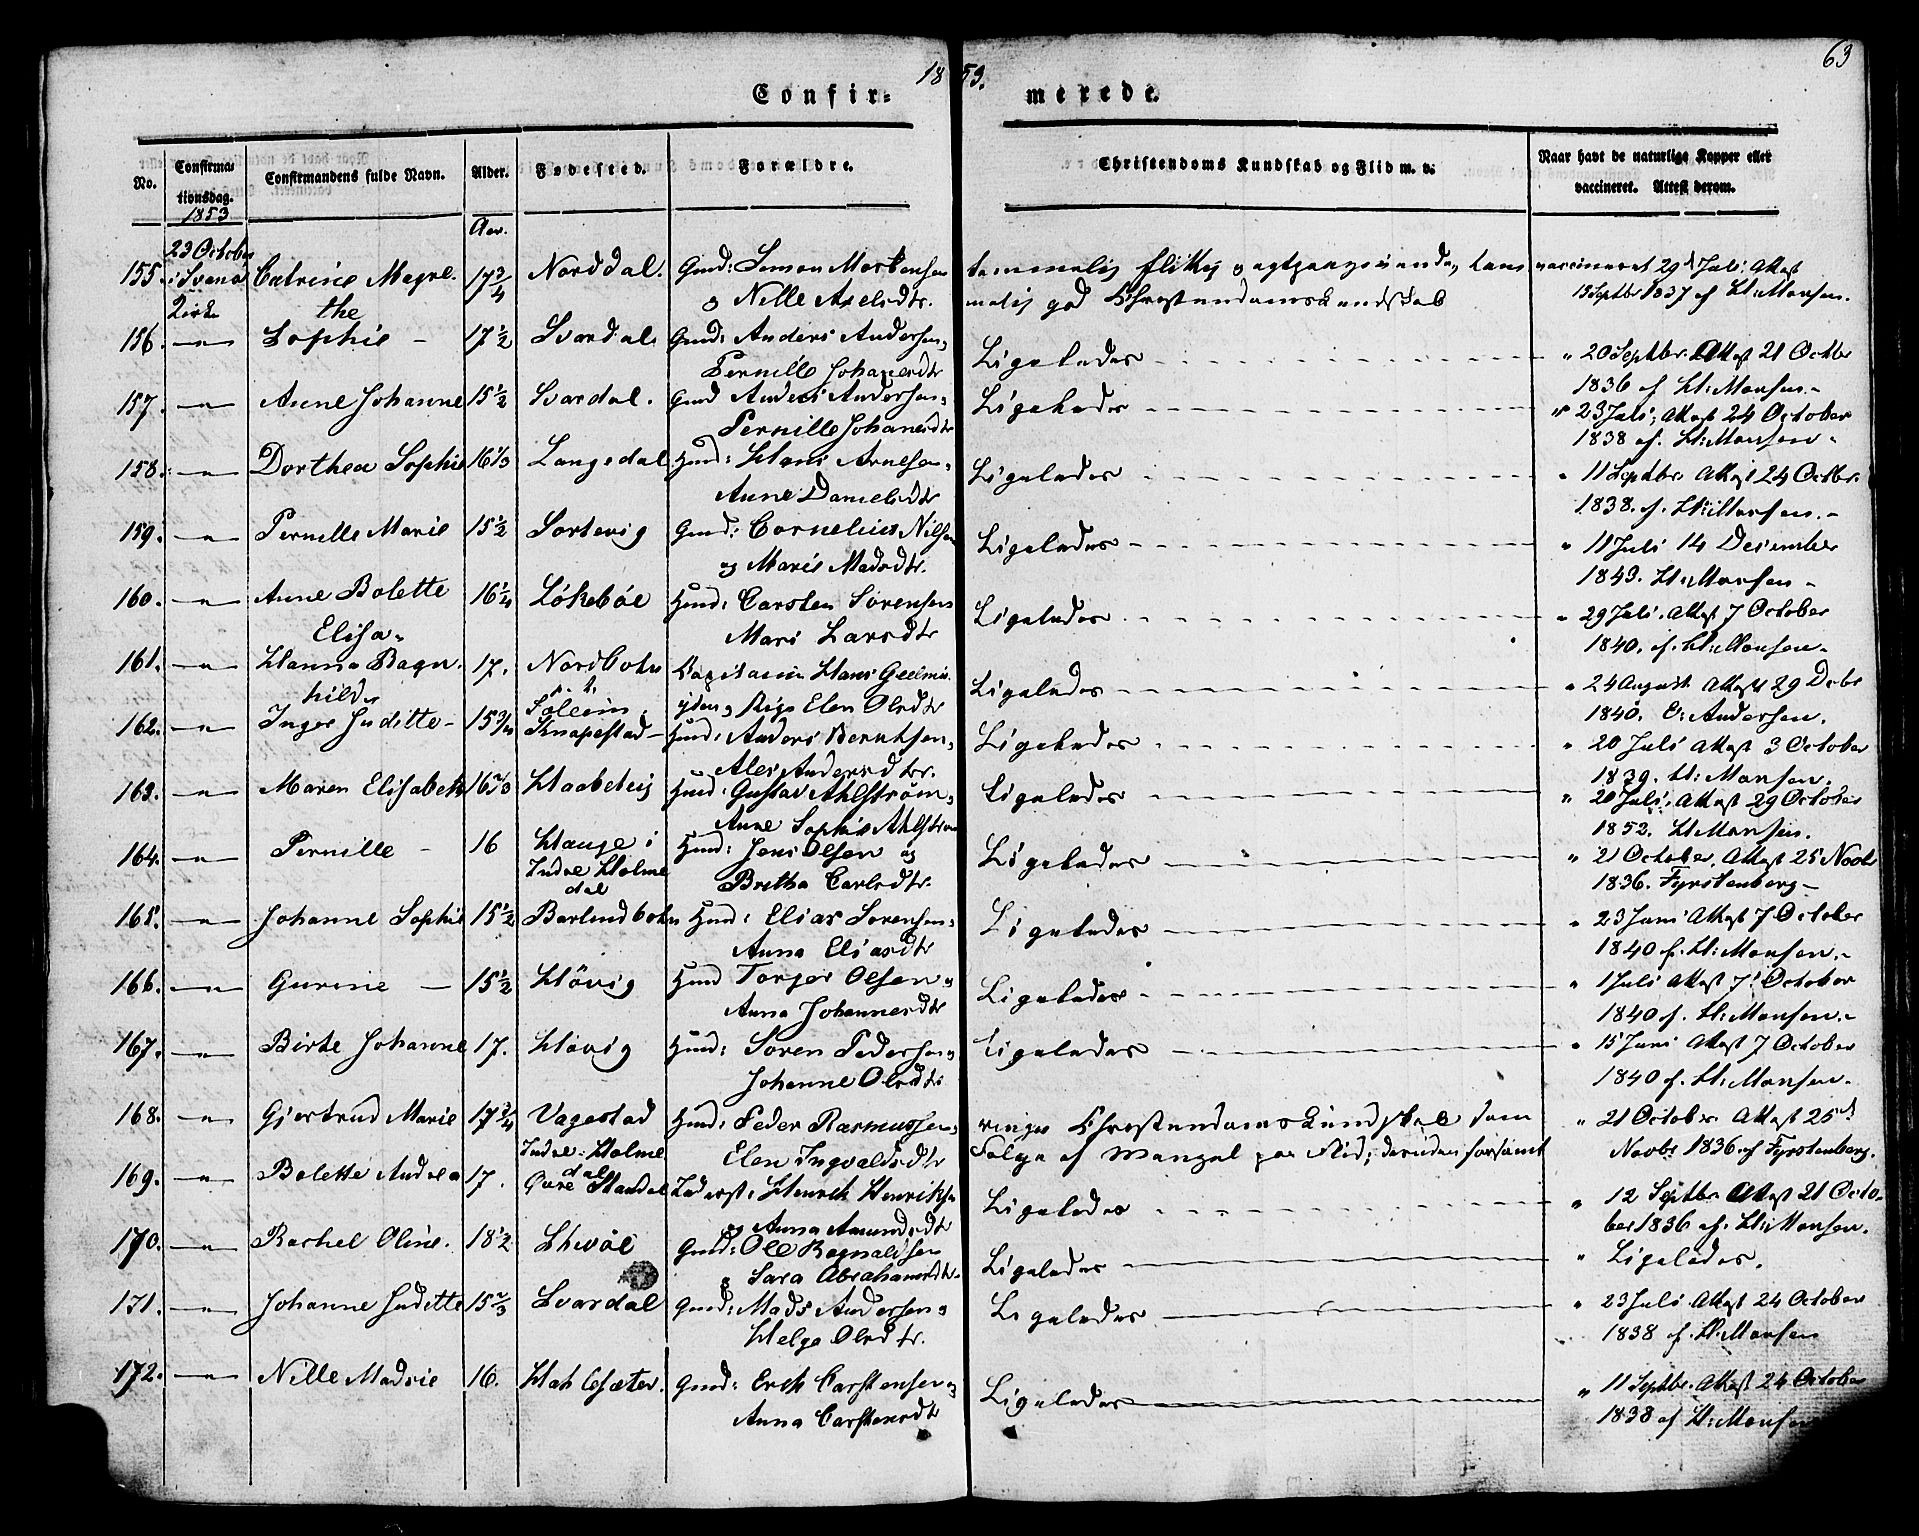 1853.
63
Confir= merede.
No. Confirmationsdag. Confirmandens fulde Navn. Alder. Fødested. Forældre. Christendoms Kundskab og Flid m. v. Naar havt de naturlige Kopper eller vaccineret. Attest derom.
1853 Aar.
155. 23 October i Svanø Kirke Catrine Magrethe 17 3/4 Norddal. Gmd: Simon Mortensen og Nille Axelsdtr.
vaccineret 29d Juli, Attest 13 Septbr 1837 af H: Monsen.
156. —"— Sophie – 17 1/2 Svardal. Gmd: Anders Andersen, Pernille Johannesdtr Ligeledes " 20 Septbr. Attest 21 Octbr 1836 af H: Monsen.
157. —"— Anne Johanne 15 1/2 Svardal. Gmd Anders Andersen, Pernille Johannesdtr Ligeledes " 23 Juli, Attest 24 October 1838 af. H: Monsen
158. —"— Dorthea Sophie 16 1/3 Langedal Hmd: Hans Arnesen, Anne Danielsdtr Ligeledes " 11 Septbr. Attest 24 Octbr. 1838. af. H: Monsen.
159. —"— Pernille Marie 15 1/2 Sortevig Gmd: Cornelius Nilsen og Marie Madsdtr. Ligeledes " 11 Juli 14 December 1843. H: Monsen
160. —"— Anne Bolette Elisa 16 1/4 Løkebøe Hmd: Carsten Sørensen Mari Larsdtr Ligeledes " 29 Juli. Attest 7 October 1840. af. H: Monsen.
161. —"— Hanna Ragnhilde 17. Nordbotn i Søleim Capitain Hans Geelmuyden, Pige Elen Olsdtr Ligeledes " 24 August Attest 29 Debr 1840. E: Andersen.
162. —"— Inger Juditte – 15 3/4 Knapestad – Hmd: Anders Berntsen, Ales Andersdtr. Ligeledes " 20 Juli Attest 3 October 1839. H: Monsen.
163. —"— Maren Elisabeth 16 2/3 Haabeteig Hmd: Gustav Ahlstrøm, Anne Sophie Ahlstrøm Ligeledes " 20 Juli, Attest 29 October 1852. H Monsen.
164. —"— Pernille – 16 Hauge i Indre Holmedal Hmd: Jens Olsen og Bretha Carlsdtr. Ligeledes " 21 October, Attest 25 Novbr 1836. Fyrstenberg –
165. —"— Johanne Sophie 15 1/2 Barlindbotn Hmd: Elias Sørensen, Anna Eliasdtr Ligeledes " 23 Juni Attest 7 October 1840 f. H: Monsen.
166. —"— Gurine – 15 1/2 Høvig Hmd Torger Olsen Anna Johannesdtr Ligeledes " 1 Juli Attest 7 October 1840 f. H: Monsen.
167. —"— Birte Johanne 17. Høvig Hmd: Søren Pedersen, Johanne Olsdtr Ligeledes " 15 Juni Attest 7 October 1840 af. H: Monsen.
168. —"— Gjertrud Marie 17 3/4 Vagestad Indre Holmedal Hmd: Peder Rasmussen, Elen Ingvaldsdtr ringe Christendomskundskab som Følge af Mangel paa Flid; desuden forsømt " 21 October Attest 25d Novbr 1836. af Fyrstenberg.
169. —"— Bolette Andrea 17. Øvre Standal Inderst: Henrik Henriksen og Anna Amundsdtr Ligeledes " 12 Septbr Attest 21 October 1836 af. H: Monsen.
170. —"— Rachel Oline. 18 1/2 Gmd: Ole Ragnaldsen Sara Abrahamsdtr. Ligeledes " Ligeledes.
171. —"— Johanne Juditte 15 2/3 Svardal Gmd: Mads Andersen, Helge Olsdtr. Ligeledes " 23 Juli Attest 24 October 1838 af. H: Monsen
172. —"— Nille Madsie 16. Gmd: Erik Carstensen og Anna Carstensdtr Ligeledes " 11 Septbr. Attest 24 October 1838 af H: Monsen